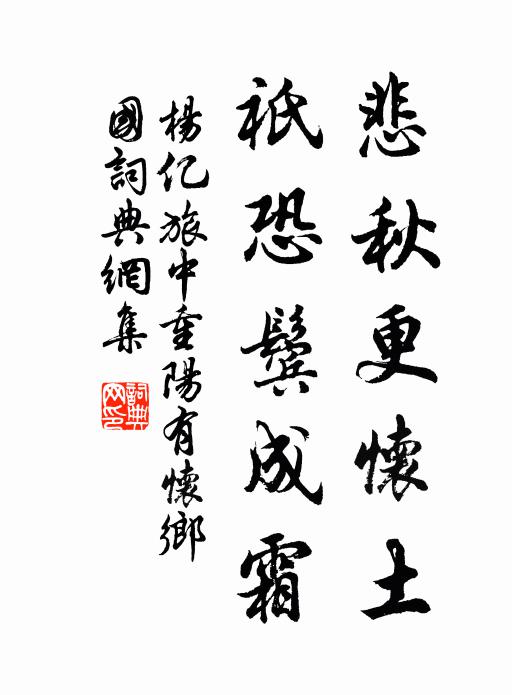 悲秋更懷土
祇恐鬢成霜
楊億旅中重陽有懷鄉
國詞典網集
詞典
网印